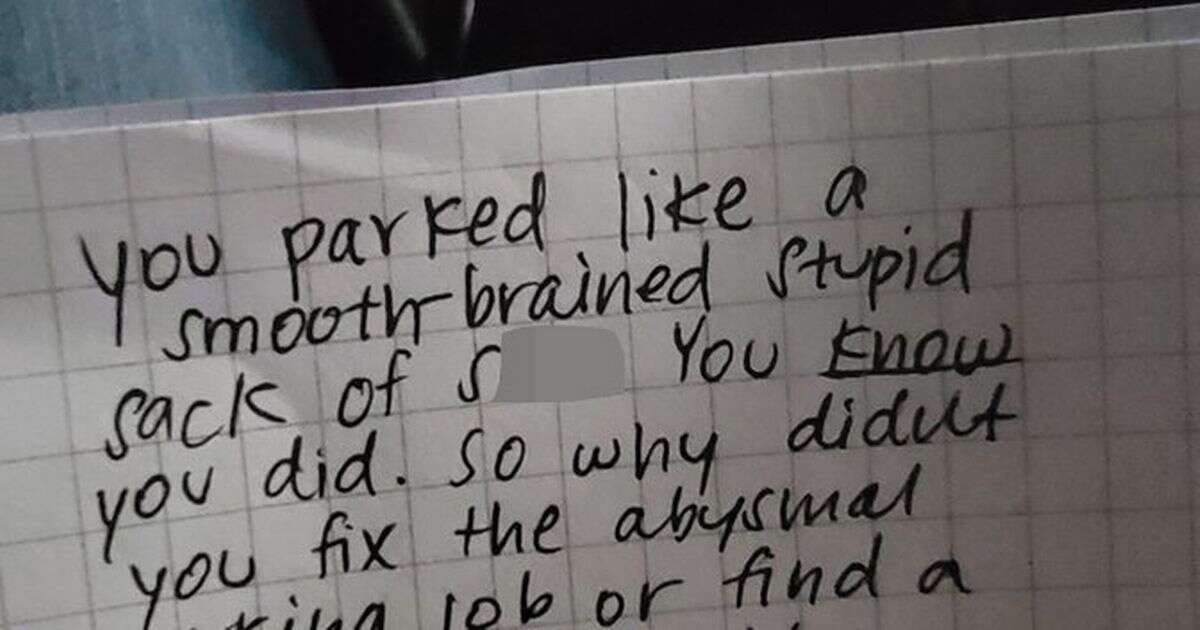 you parked like a
smooth-brained stupid
sack of s You know
you did. So why didn't
you fix the abysmal
job or find a